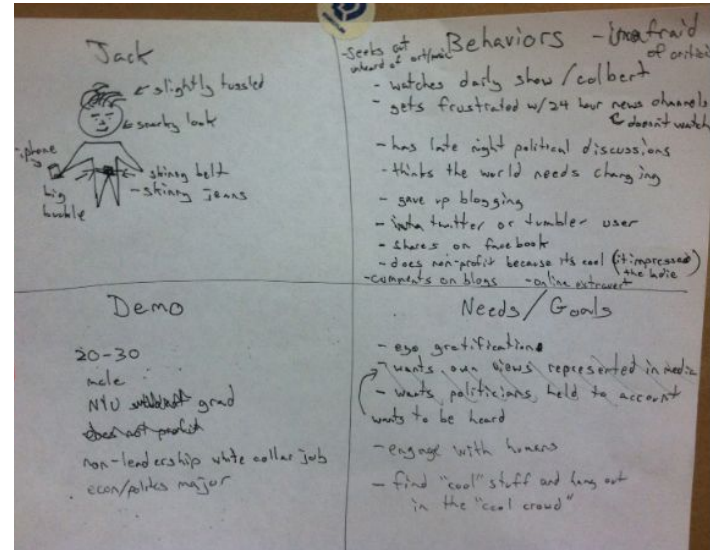 Jack
slightly tussled
snarky look
iphone
skinny belt
- skinny jeans
big
buckle
Behaviors
- unafraid
of
- seeks out
unheard of art/music
- watches daily show/colbert
- gets frustrated w/24 hour news channels
doesn't watch
- has late night political discussions
- thinks the world needs changing
- gave up blogging
- twitter or tumbler user
- shares on facebook
- does non-profit because its cool (it impresses
the
- comments on blogs - online extravert
Demo
20-30
male
NYU grad
does not profit
non-leadership white collar job
econ/polites major
Needs/Goals
- ego gratification
- wants own views represented in media
- wants politicians held to account
wants to be heard
- engage with humans
- find "cool" stuff and hang out
in the "cool crowd"